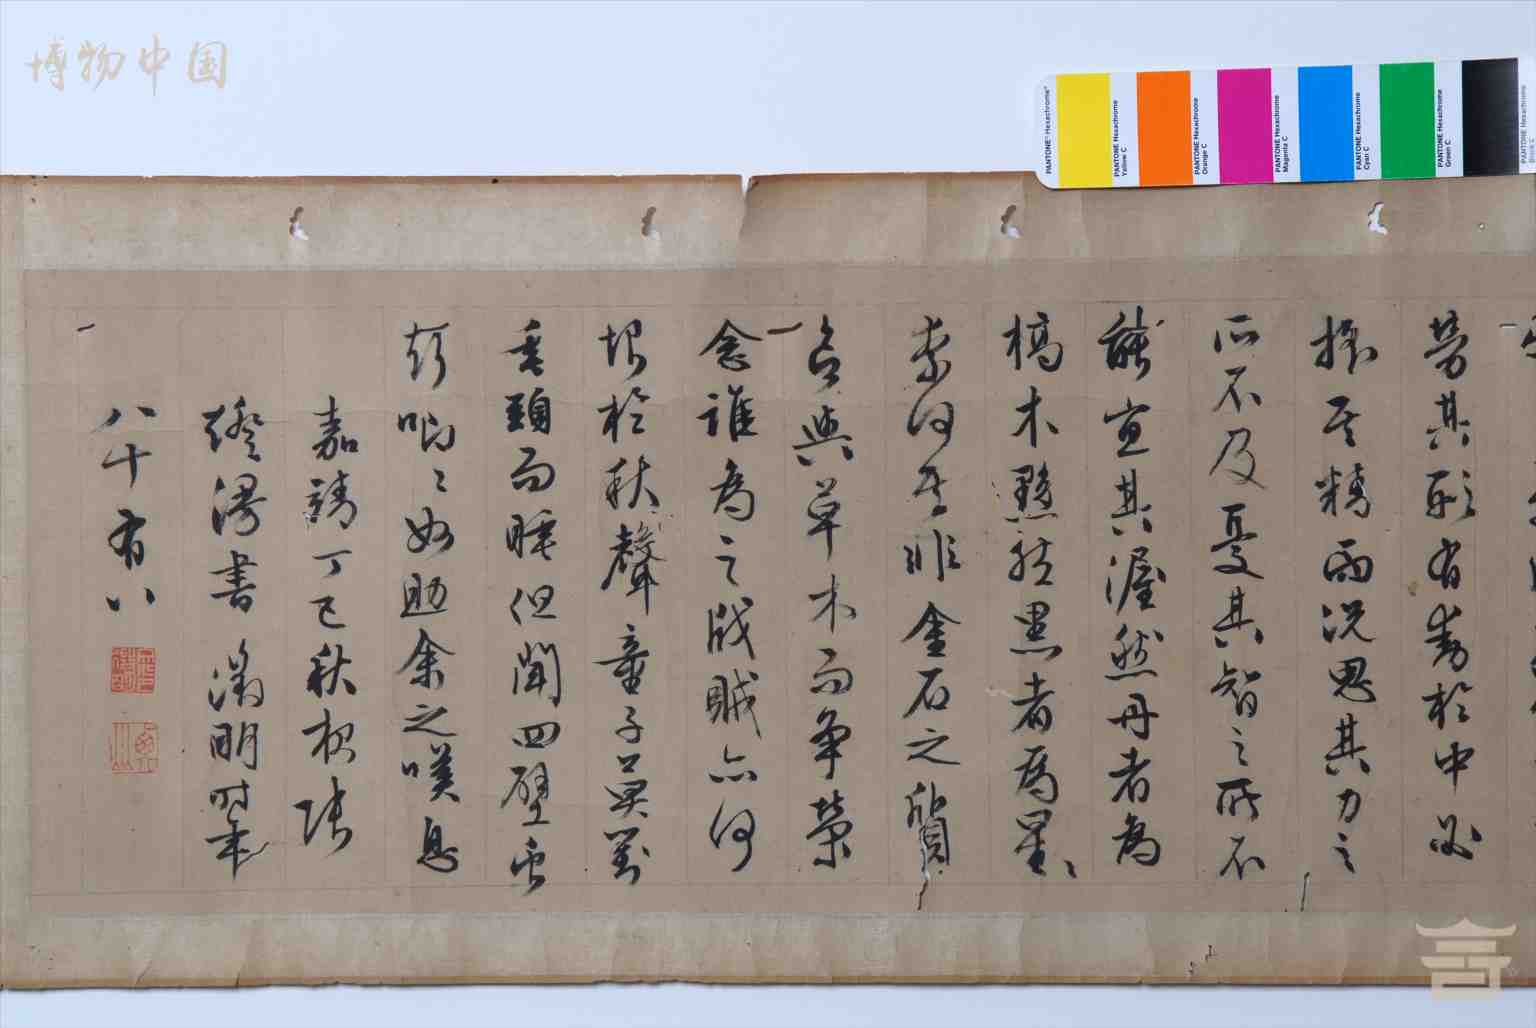 勞其形有動於中必
搖其精而況思其力之
所不及憂其智之所不
能宜其渥然丹者為
槁木黟然黑者為星〻
奈何其非金石之質
與草木而爭榮
念誰為之戕賊亦何
恨於秋聲童子莫對
垂頭而睡但聞四壁虫
聲唧〻如助余之嘆息
嘉靖丁巳秋夜張
燈漫書 徵明時年
八十有八
博物中国
PANTONE® Hexachrome®
PANTONE Hexachrome Yellow C
PANTONE Hexachrome Orange C
PANTONE Hexachrome Magenta C
PANTONE Hexachrome Cyan C
PANTONE Hexachrome Green C
PANTONE Hexachrome Black C